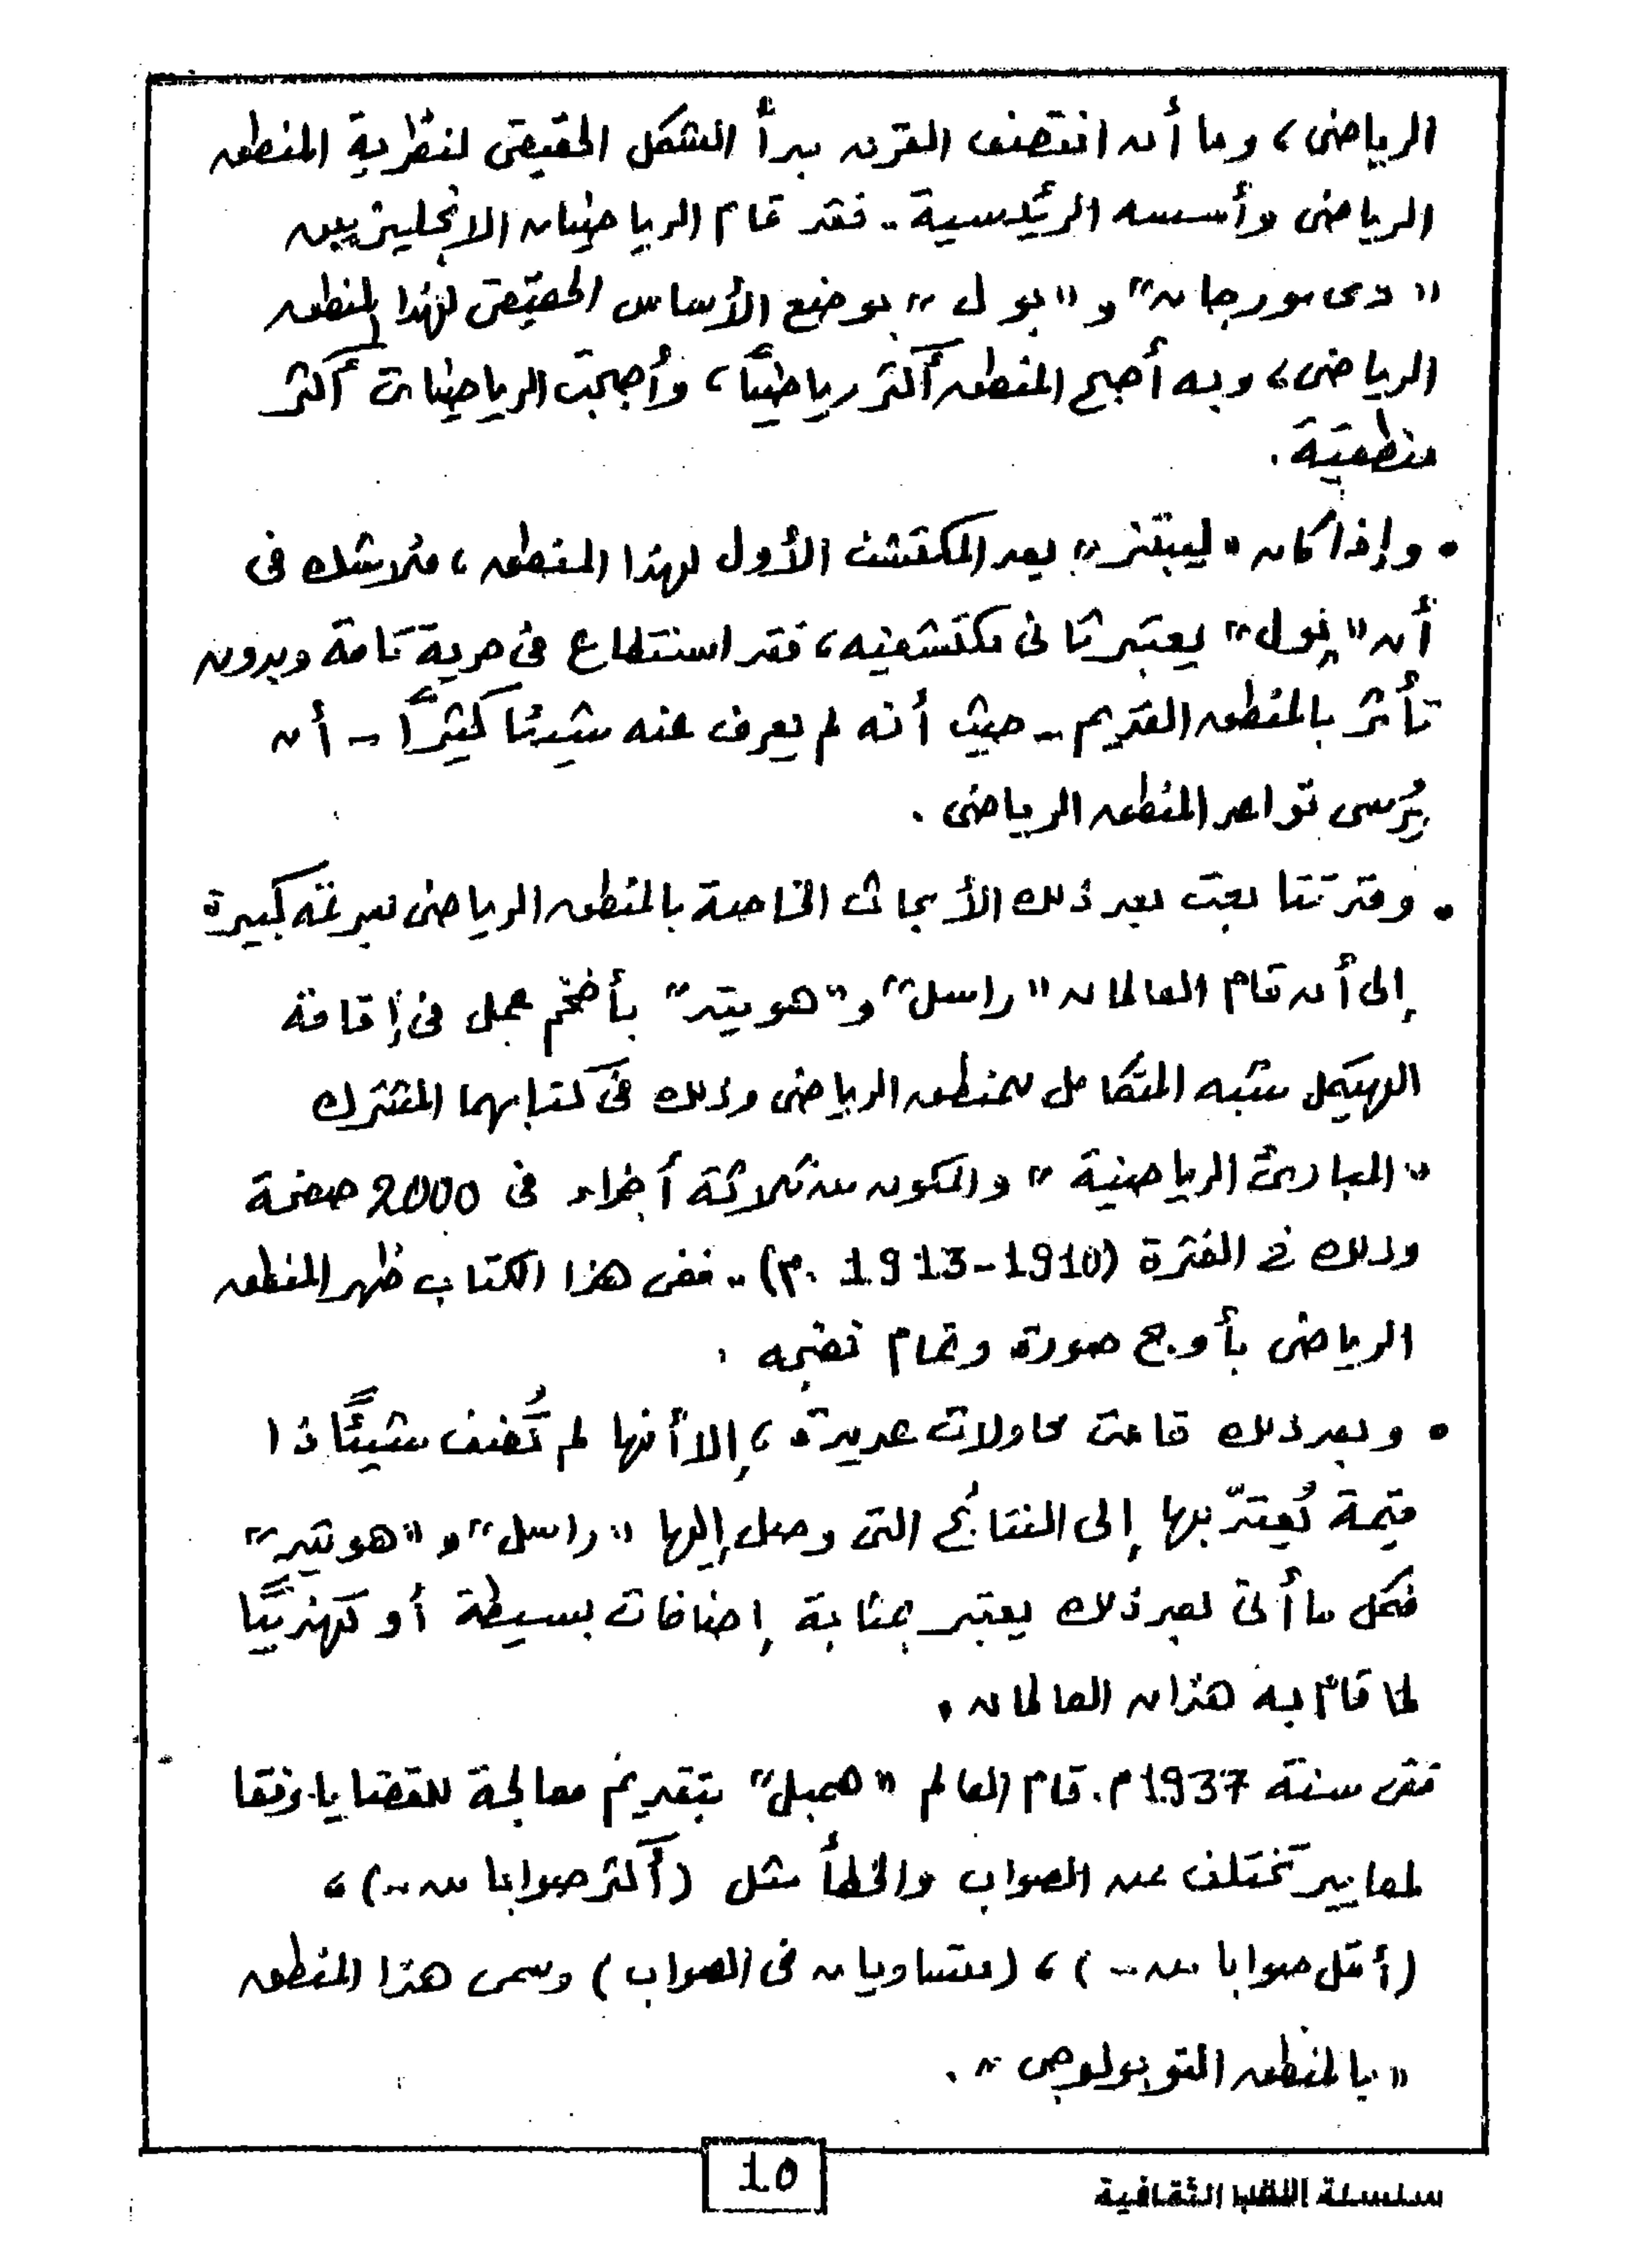 الرياضى ، وما أن انتصف القرن بدأ الشكل الحقيقى لنظرية المنطق
الرياضى وأسسه الرئيسية .. فقد قام الرياضيان الانجليزيين
"دى مورجان" و "بول" بوضع الأساس الحقيقى لهذا المنطق
الرياضى ، وبه أصبح المنطق أكثر رياضيًا ، وأصبحت الرياضيات أكثر
منطقية .
• وإذا كان "ليبتنز" يعد المكتشف الأول لهذا المنطق ، فلا شك فى
أن "بول" يعتبر ثانى مكتشفيه ، فقد استطاع فى حرية تامة وبدون
تأثر بالمنطق القديم - حيث أنه لم يعرف عنه شيئا كثيرًا - أن
يُرسى قواعد المنطق الرياضى .
• وقد تتابعت بعد ذلك الأبحاث الخاصة بالمنطق الرياضى بسرعة كبيرة
إلى أن قام العالمان "راسل" و "هويتد" بأضخم عمل فى إقامة
الهيكل شبه المتكامل للمنطق الرياضى وذلك فى كتابهما المشترك
"المبادئ الرياضية" والمكون من ثلاثة أجزاء فى 2000 صفحة
وذلك فى الفترة (1910-1913 م.) .. ففى هذا الكتاب ظهر المنطق
الرياضى بأوج صورة وتمام نضجه .
• وبعد ذلك قامت محاولات عديدة ، إلا أنها لم تُضف شيئًا ذا
قيمة يُعتدّ بها إلى النتائج التى وصل إليها "راسل" و "هويتد"
فكل ما أتى بعد ذلك يعتبر بمثابة إضافات بسيطة أو تهذيبًا
لما قام به هذان العالمان .
ففى سنة 1937م. قام العالم "همبل" بتقديم معالجة للقضايا وفقا
لمعايير تختلف عن الصواب والخطأ مثل (أكثر صوابا من ..) ،
(أقل صوابا من ..) ، (متساويان فى الصواب) وسمى هذا المنطق
"بالمنطق التوبولوجى" .
10
سلسلة الثقافية